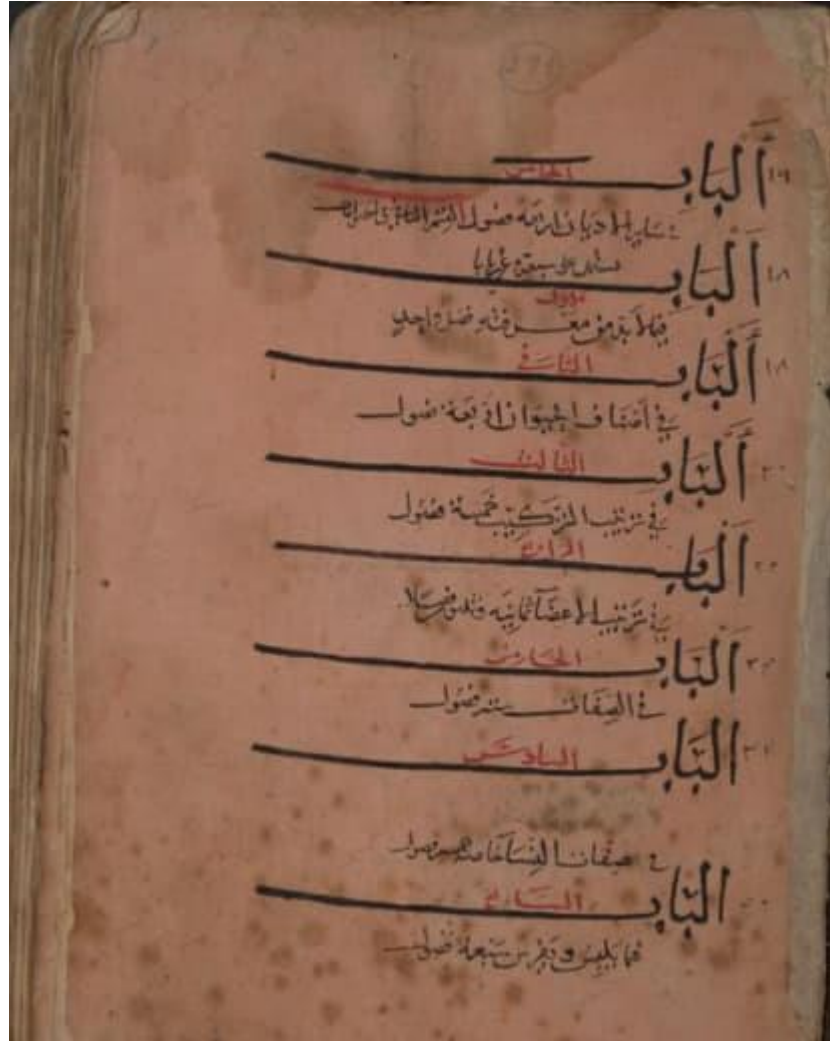 ألباب الخامس
في ساير الاديان اربعة فصول القسم
ألباب الاول
فيما لا بد من معرفته فصل واحد
ألباب الثاني
في أصناف الحيوان اربعة فصول
ألباب الثالث
في ترتيب التركيب خمسة فصول
ألباب الرابع
في ترتيب الاعضآ ثمانيه
ألباب الخامس
في الصفات سته فصول
الباب السادس
في صفات النسآ خاصة فصول
الباب السابع
فما يلبس ويفرش سبعة فصول